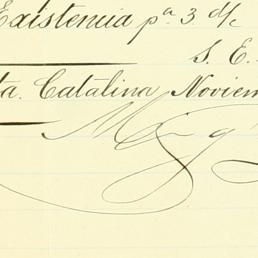 Existencia pª 3 d/c
S. E.
ta. Catalina Noviem